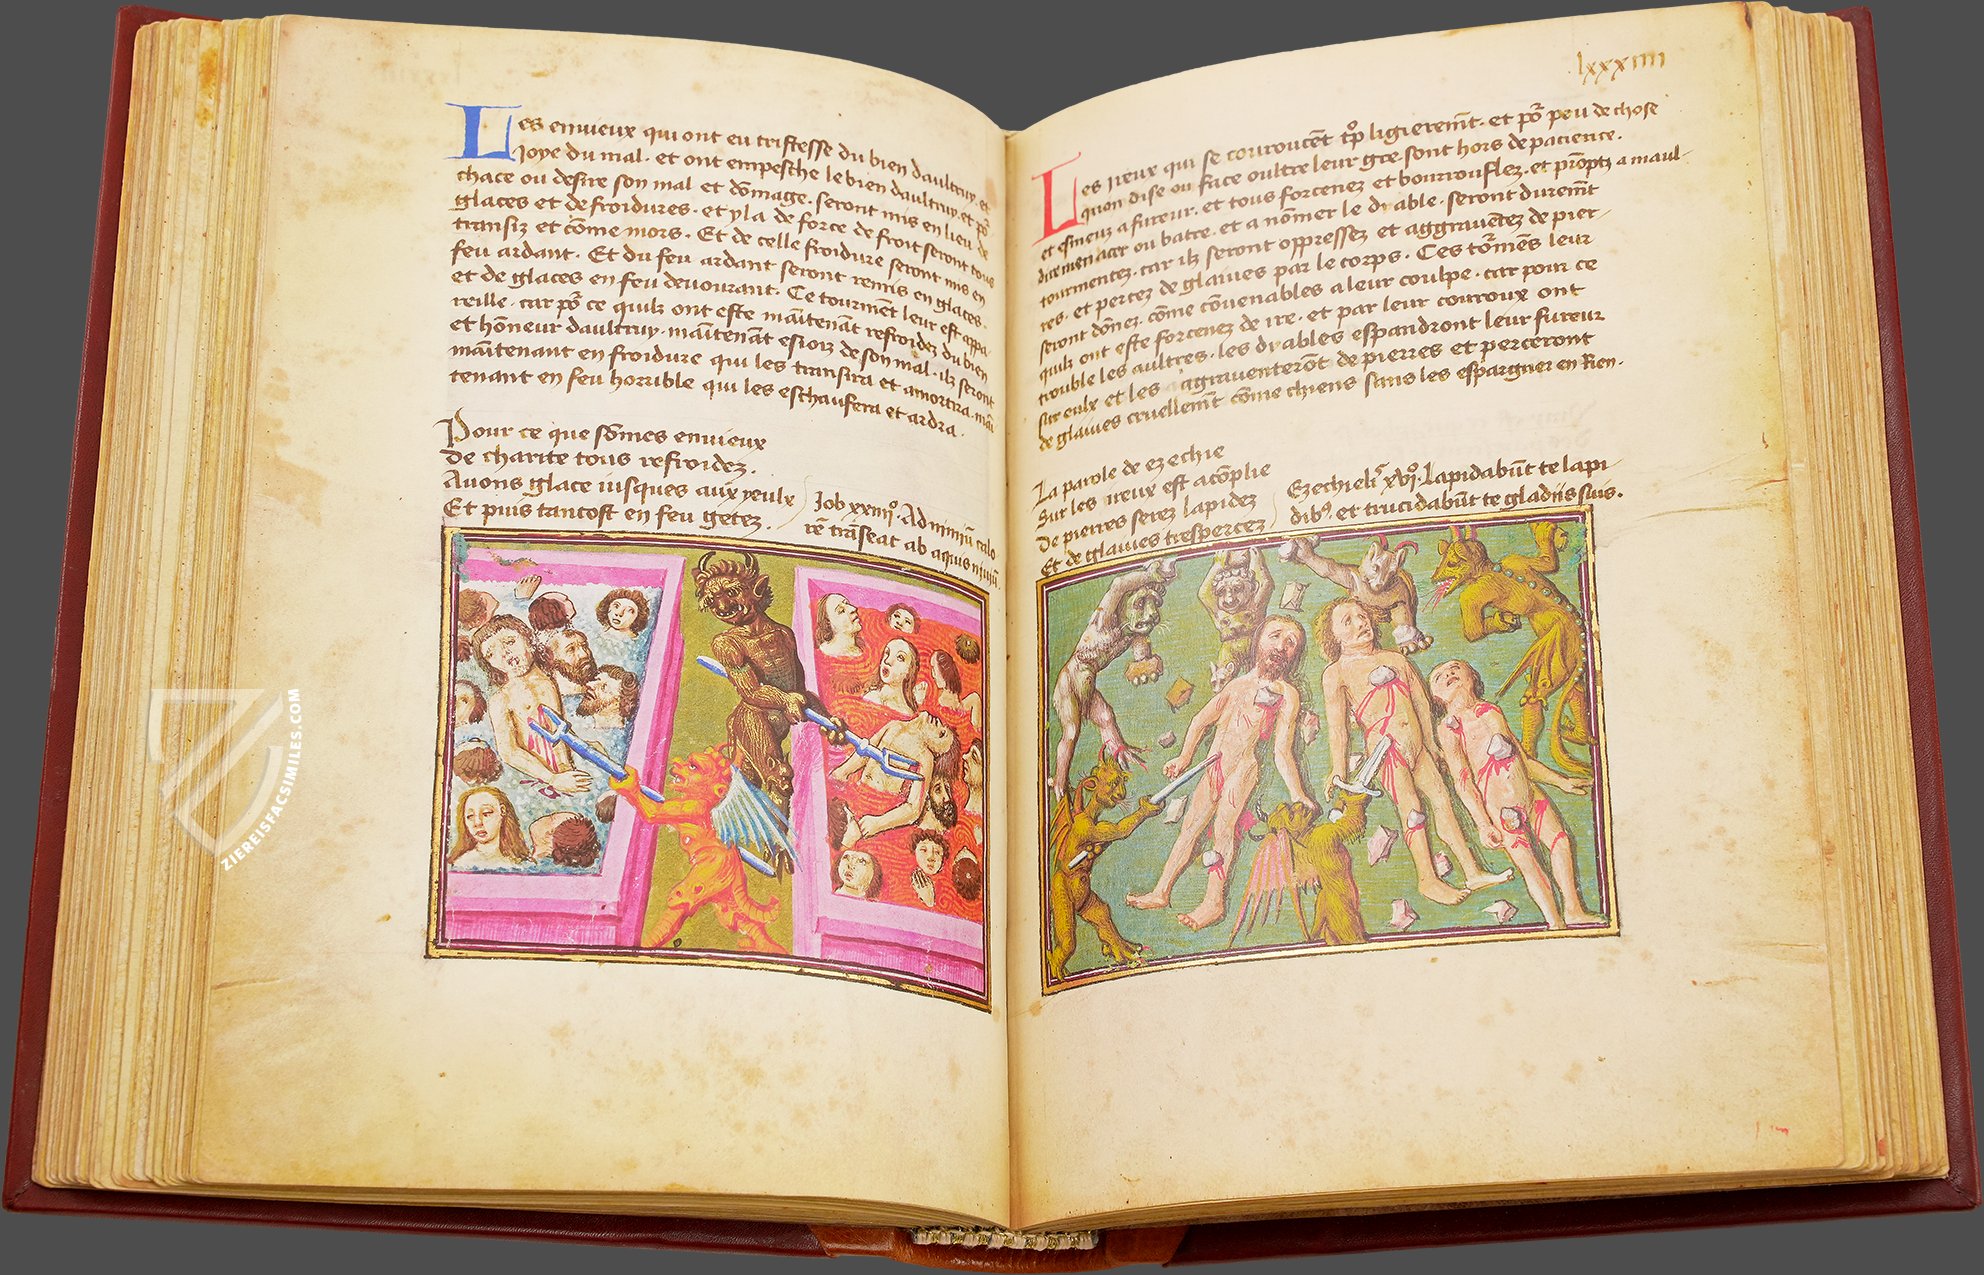 Les enuieux qui ont eu tristesse du bien daultruy. et
Joye du mal. et ont empesche le bien daultruy. et põ
chace ou desire son mal et dõmage. seront mis en lieu de
glaces et de froidures. et y la de force de froit seront tous
transiz et cõme mors. Et de celle froidure seront mis en
feu ardant. Et du feu ardant seront remis en glaces.
et de glaces en feu deuourant. Ce tourmẽt leur est appa
reille. car põ ce quilz ont este maĩtenãt refroidez du bien
et hõneur daultruy. maĩtenãt esioiz de son mal. ilz seront
maĩtenant en froidure qui les transira et amortira. maĩ
tenant en feu horrible qui les eschaufera et ardra.
Pour ce que sõmes enuieux
De charite tous refroidez.
Auons glace iusques aux yeulx
Et puis tantost en feu getez.
Job xxiiijº. Ad nimiũ calo
rẽ trãseat ab aquis niuiũ.
lxxxiiii
Les ireux qui se courroucẽt tp̃ ligieremẽt. et põ peu de chose
quon dise ou face oultre leur gre. sont hors de pacience.
et esmeuz a fureur. et tous forcenez et bourrouflez. et prõptz a maul
dire menacer ou batre. et a nõmer le dyable. seront duremẽt
tourmentez. car ilz seront oppressez et aggrauẽtez de pier
res. et percez de glaiues par le corps. Ces tormẽs leur
seront dõnez cõme cõuenables a leur coulpe. car pour ce
quilz ont este forcenez de ire. et par leur courroux ont
trouble les aultres. les dyables espandront leur fureur
sur eulx et les agrauenterõt de pierres et perceront
de glaiues cruellemẽt cõme chiens sans les espargner en rien.
La parole de ezechie
Sur les ireux est acõplie
De pierres serez lapidez
Et de glaiues trespercez
Ezechielis xvjº. Lapidabũt te lapi
dibꝯ. et trucidabũt te gladiis suis.
ZIEREISFACSIMILES.COM